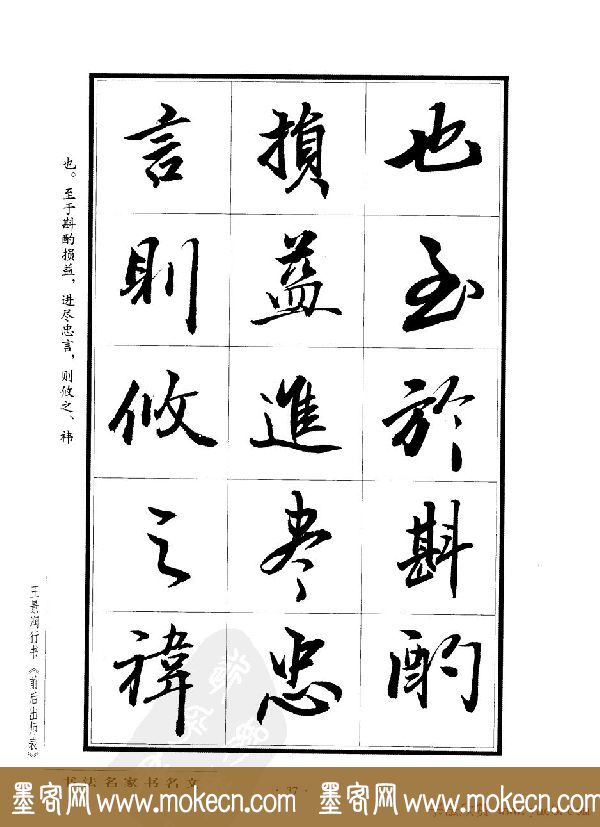 也至於斟酌
損益進尽忠
言則攸之禕
也。至于斟酌损益，进尽忠言，则攸之、祎
王景润行书《前后出师表》
书法名家书名文
·37·
墨客网 www.mokecn.com 墨客网 www.mokecn.com